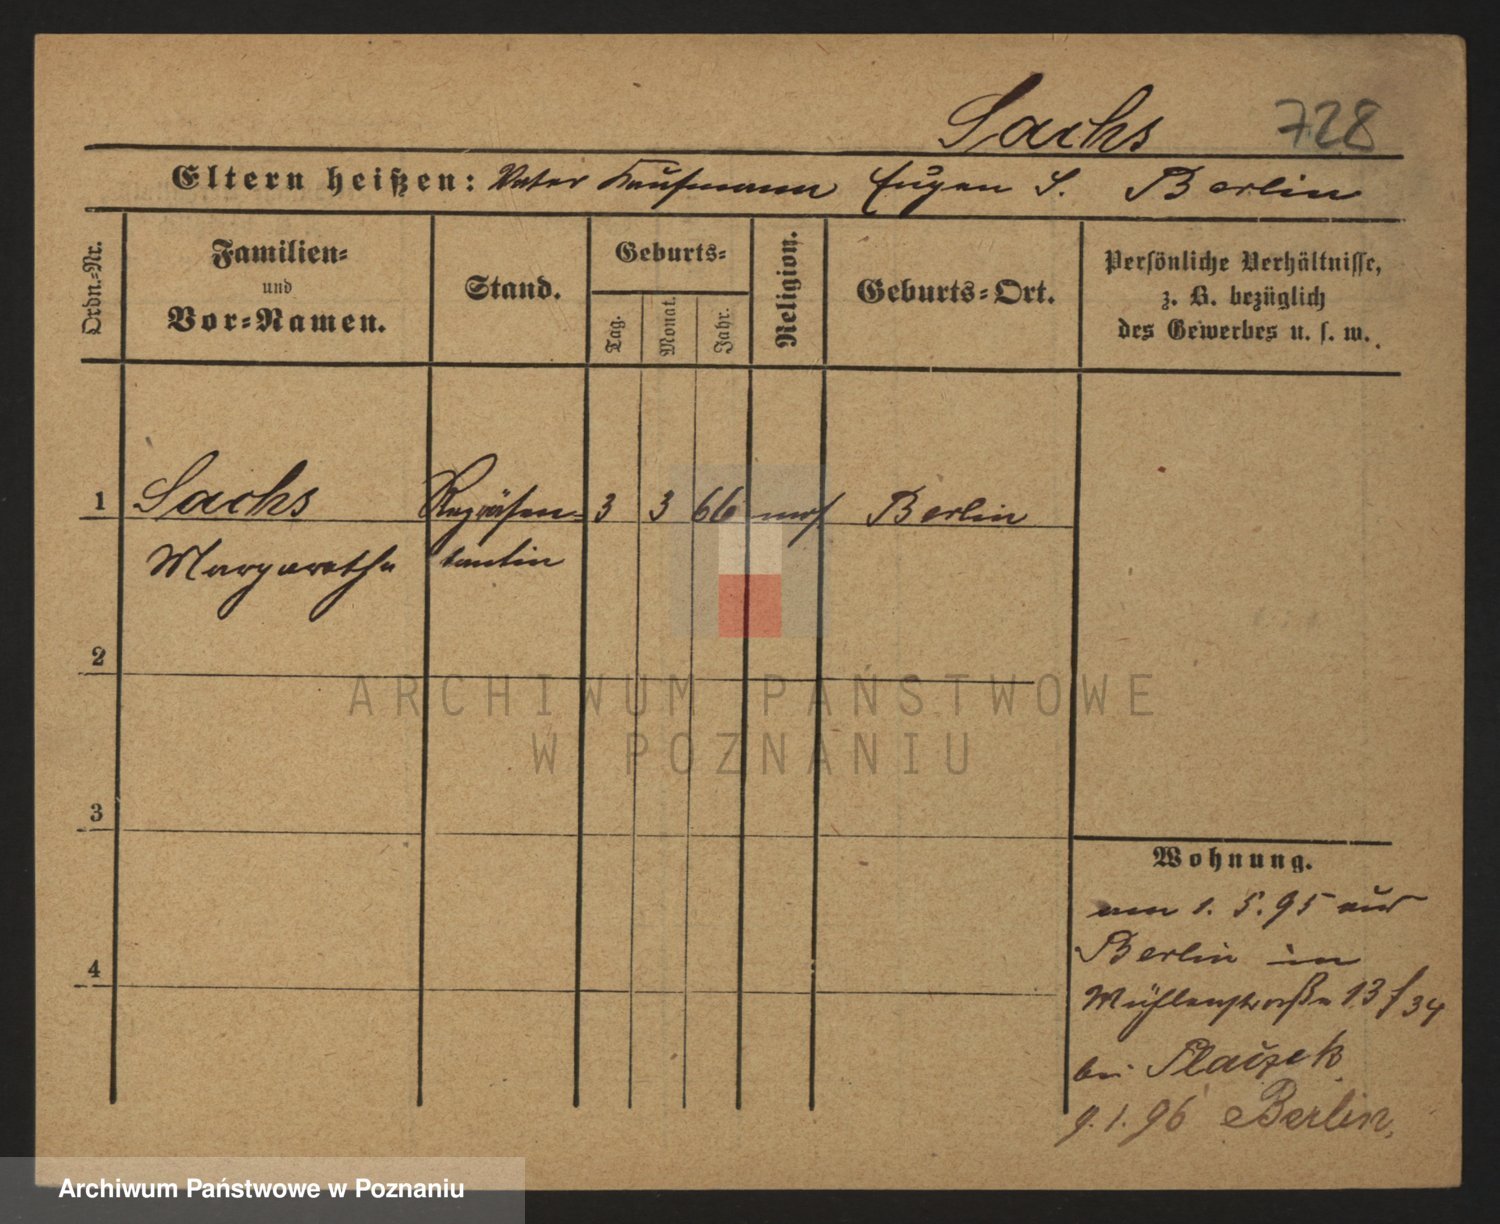 Sachs 728
Eltern heißen: Vater Kaufmann Eugen S. Berlin
Ordn.-Nr.
Familien-
und
Vor-Namen.
Stand.
Geburts-
Tag.
Monat.
Jahr.
Religion.
Geburts-Ort.
Persönliche Verhältnisse,
z. B. bezüglich
des Gewerbes u. s. w.
1 Sachs Repräsen- 3 3 66 mos Berlin
Margarethe tantin
2
ARCHIWUM PAŃSTWOWE
W POZNANIU
3
Wohnung.
am 1. 5. 95 aus
Berlin in
4
Mühlenstraße 13 / 34
bei Placzek
9. 1. 96 Berlin.
Archiwum Państwowe w Poznaniu